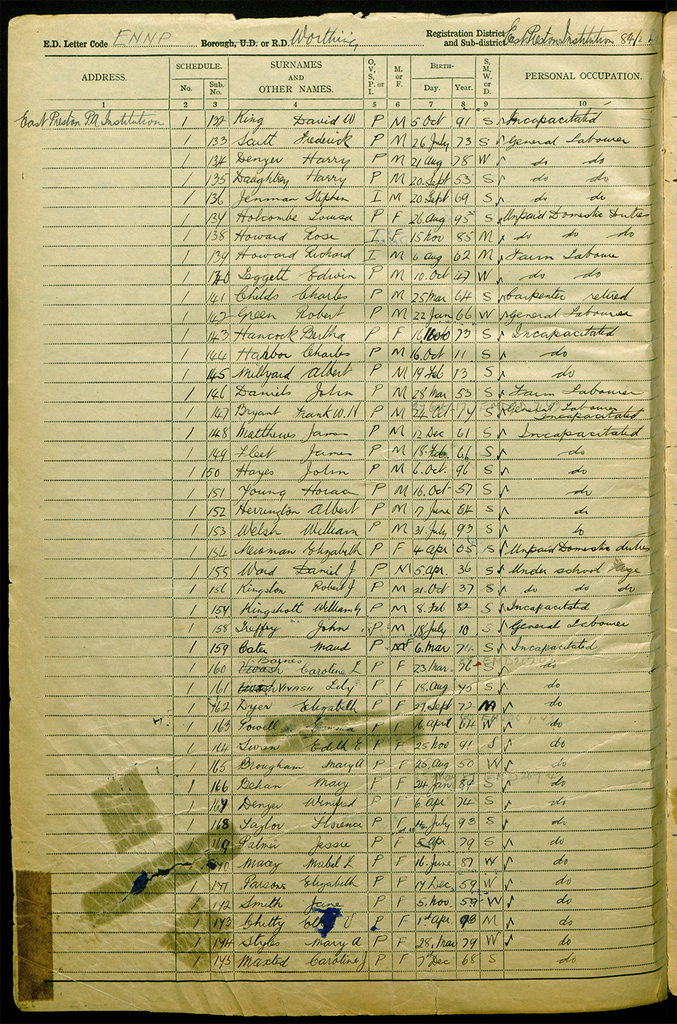 E.D. Letter Code ENNP Borough, U.D. or R.D. Worthing Registration District and Sub-district East Preston Institution
ADDRESS. SCHEDULE. SURNAMES AND OTHER NAMES. O, V, S, P, or I. M. or F. BIRTH— S, M, W, or D. PERSONAL OCCUPATION.
No. Sub. No. Day. Year.
1 2 3 4 5 6 7 8 9 10
East Preston PA Institution 1 132 King David W P M 5 Oct 91 S Incapacitated
1 133 Scutt Frederick P M 26 July 73 S General Labourer
1 134 Denyer Harry P M 21 Aug 78 W do do
1 135 Daughtrey Harry P M 20 Sept 53 S do do
1 136 Jenman Stephen I M 20 Sept 69 S do do
1 137 Holcombe Louisa P F 26 Aug 95 S Unpaid Domestic Duties
1 138 Howard Rose I F 15 Nov 85 M do do do
1 139 Howard Richard I M 6 Aug 62 M Farm Laboure
1 140 Leggett Edwin P M 10 Oct 47 W do do
1 141 Childs Charles P M 25 Mar 64 S Carpenter retired
1 142 Green Robert P M 22 Jan 66 W General Labourer
1 143 Hancock Bertha P F 16 73 S Incapacitated
1 144 Harbor Charles P M 16 Oct 11 S do
1 145 Millyard Albert P M 19 Feb 13 S do
1 146 Daniels John P M 28 Mar 53 S Farm Labourer
1 147 Bryant Frank W. H P M 24 Oct 74 S General Labourer Incapacitated
1 148 Matthews James P M 12 Dec 61 S Incapacitated
1 149 Fleet James P M 18 Feb 66 S do
1 150 Hayes John P M 6 Oct 96 S do
1 151 Young Horace M 16 Oct 57 S do
1 152 Herrington Albert P M 17 June 64 S do
1 153 Welsh William P M 31 July 93 S do
1 154 Newman Elizabeth P F 4 Apr 05 S Unpaid Domestic duties
1 155 Ward Daniel J P M 5 Apr 36 S Under school age
1 156 Kingston Robert J P M 21 Oct 37 S do do do
1 157 Kingshott William G P M 8 Feb 82 S Incapacitated
1 158 Treffry John P M 18 July 10 S General Labourer
1 159 Cater Maud P F 6 Mar S Incapacitated
1 160 Baynes Caroline L P F 23 Mar 56 do
1 161 VIVASH Lily P F 18 Aug 45 S do
1 162 Dyer Elizabeth P F 27 Sept 72 M do
1 163 Powell Emma F 16 April 64 W do
1 164 Swan Edith E P F 25 Nov 91 S do
1 165 Brougham Mary A P F 25 Aug 50 W do
1 166 Dehan Mary P F 24 Jan 84 S do
1 167 Denyer Winifred P F 6 Apr 74 S do
1 168 Taylor Florence P F 14 July 93 S do
1 169 Palmer Jessie P F 5 Apr 79 S do
1 170 Macey Mabel L P F 16 June 87 W do
1 171 Parsons Elizabeth P F 14 Dec 59 W do
1 172 Smith Jane P F 5 Nov 59 W do
1 173 Chitty J P F 1st Apr 93 M do
1 174 Styles Mary A P F 28 Mar 79 W do
1 175 Maxted Caroline J P F 7th Dec 68 S do